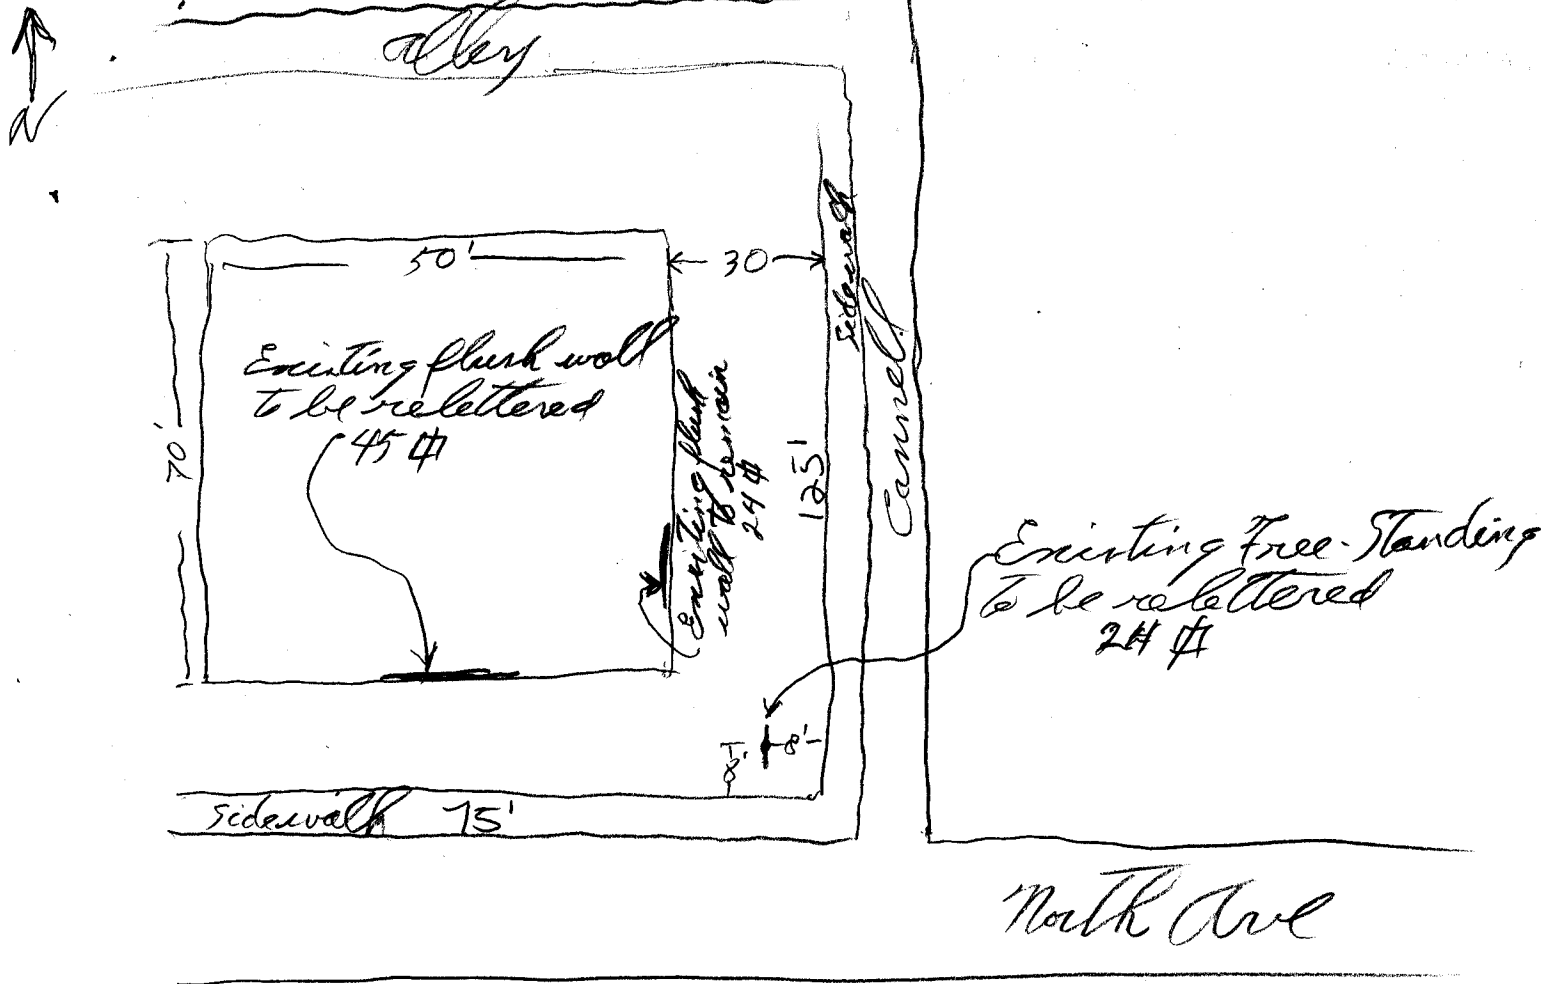 alley
N
50'
30
Sidewalk
Existing flush wall
to be relettered
45 ⌷
70'
Existing flush
wall to remain
24 ⌷
125'
Cannell
Existing Free-Standing
To be relettered
24 ⌷
8'
8'
Sidewalk 75'
North Ave